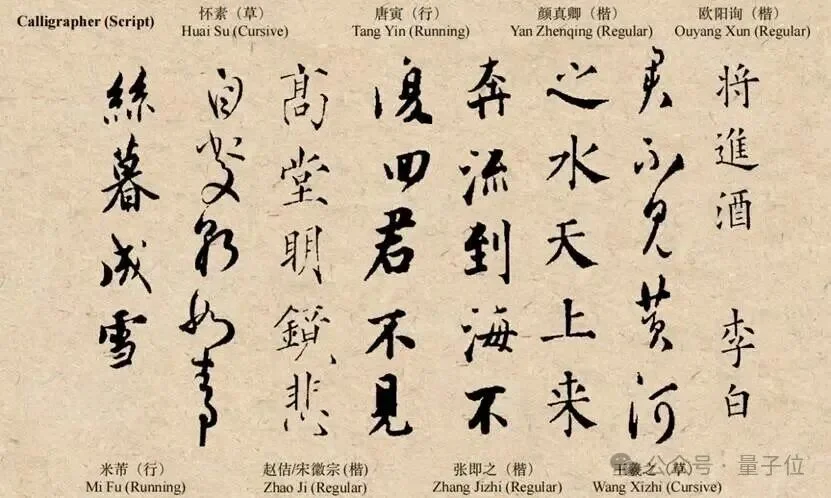 Calligrapher (Script)
怀素（草）
Huai Su (Cursive)
唐寅（行）
Tang Yin (Running)
颜真卿（楷）
Yan Zhenqing (Regular)
欧阳询（楷）
Ouyang Xun (Regular)
将進酒 李白
君不見黄河
之水天上来
奔流到海不
復回君不見
髙堂明鏡悲
白髮朝如青
絲暮成雪
米芾（行）
Mi Fu (Running)
赵佶/宋徽宗（楷）
Zhao Ji (Regular)
张即之（楷）
Zhang Jizhi (Regular)
王羲之（草）
Wang Xizhi (Cursive)
公众号 · 量子位